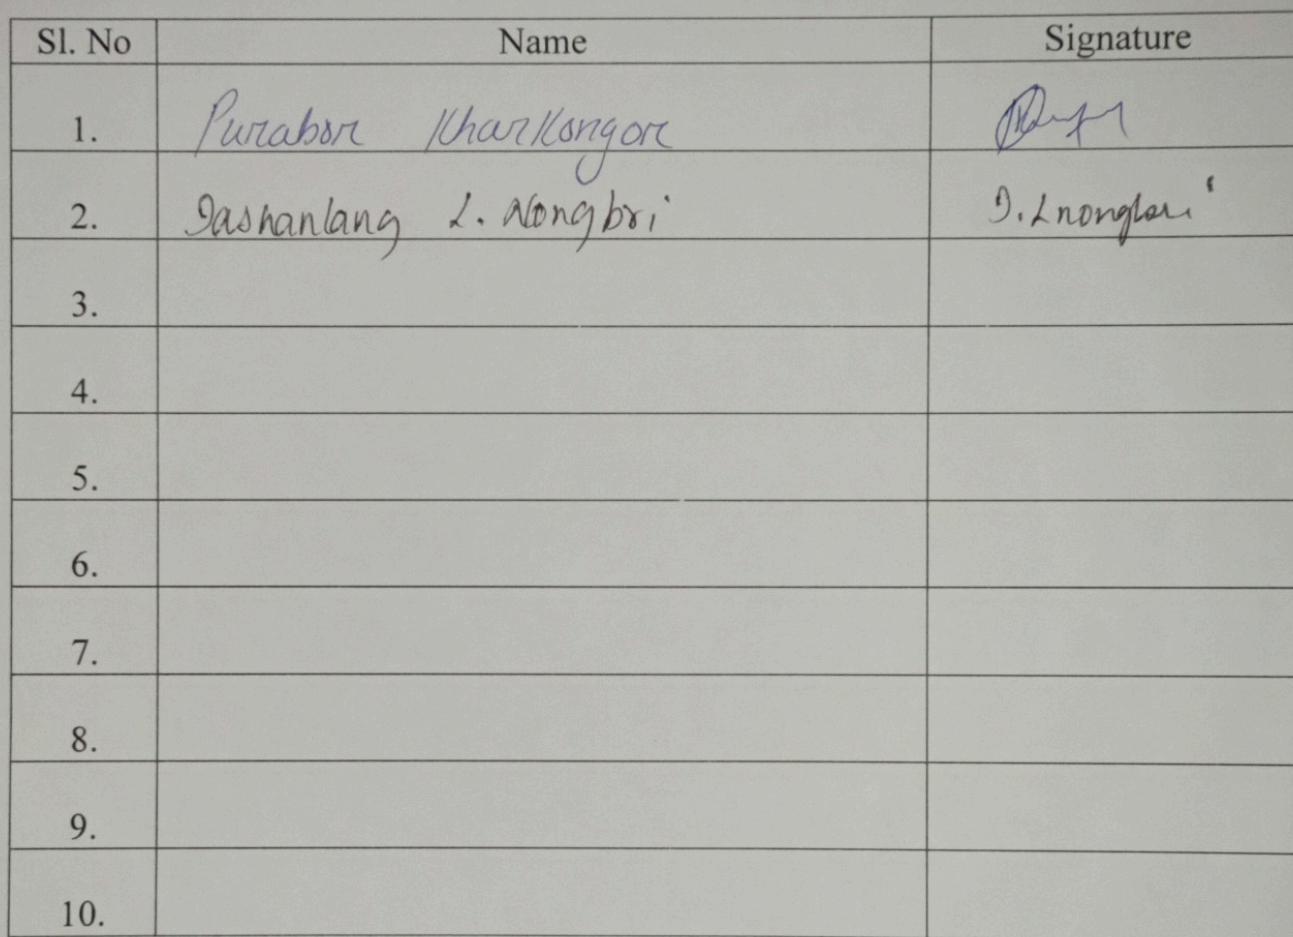 Sl. No Name Signature
1. Purabor Kharkongor
2. Iashanlang L. Nongbri I. Lnongbri
3.
4.
5.
6.
7.
8.
9.
10.